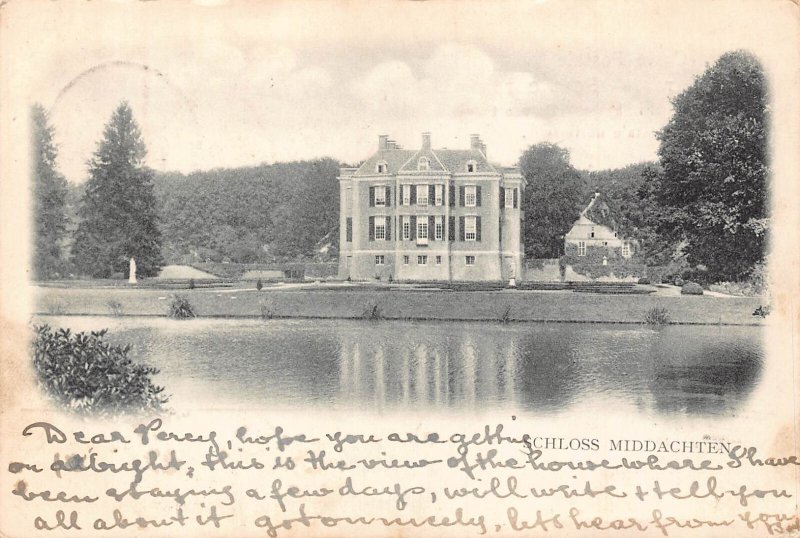 SCHLOSS MIDDACHTEN
Dear Percy, hope you are getting
on allright, this is the view of the house where I have
been staying a few days, will write & tell you
all about it got on nicely, let's hear from you